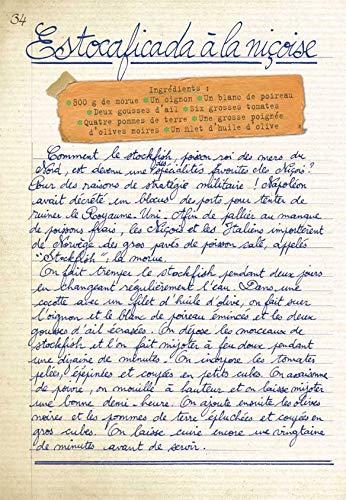 34
Estocaficada à la niçoise
Ingrédients :
800 g de morue Un oignon Un blanc de poireau
Deux gousses d'ail Six grosses tomates
Quatre pommes de terre Une grosse poignée
d'olives noires Un filet d'huile d'olive
Comment le stockfish, poisson roi des mers du
Nord, est devenu une des spécialités favorites des Niçois ?
Pour des raisons de stratégie militaire ! Napoléon
avait décrété un blocus des ports pour tenter de
ruiner le Royaume-Uni. Afin de pallier au manque
de poissons frais, les Niçois et les Italiens importèrent
de Norvège des gros pavés de poisson salé, appelés
"Stockfish", la morue.
On fait tremper le stockfish pendant deux jours
en changeant régulièrement l'eau. Dans une
cocotte avec un filet d'huile d'olive, on fait suer
l'oignon et le blanc de poireau émincés et les deux
gousses d'ail écrasées. On dépose les morceaux de
stockfish et l'on fait mijoter à feu doux pendant
une dizaine de minutes. On incorpore les tomates
pelées, épépinées et coupées en petits cubs. On assaisonne
de poivre, on mouille à hauteur et on laisse mijoter
une bonne demi-heure. On ajoute ensuite les olives
noires et les pommes de terre épluchées et coupées en
gros cubes. On laisse cuire encore une vingtaine
de minutes avant de servir.